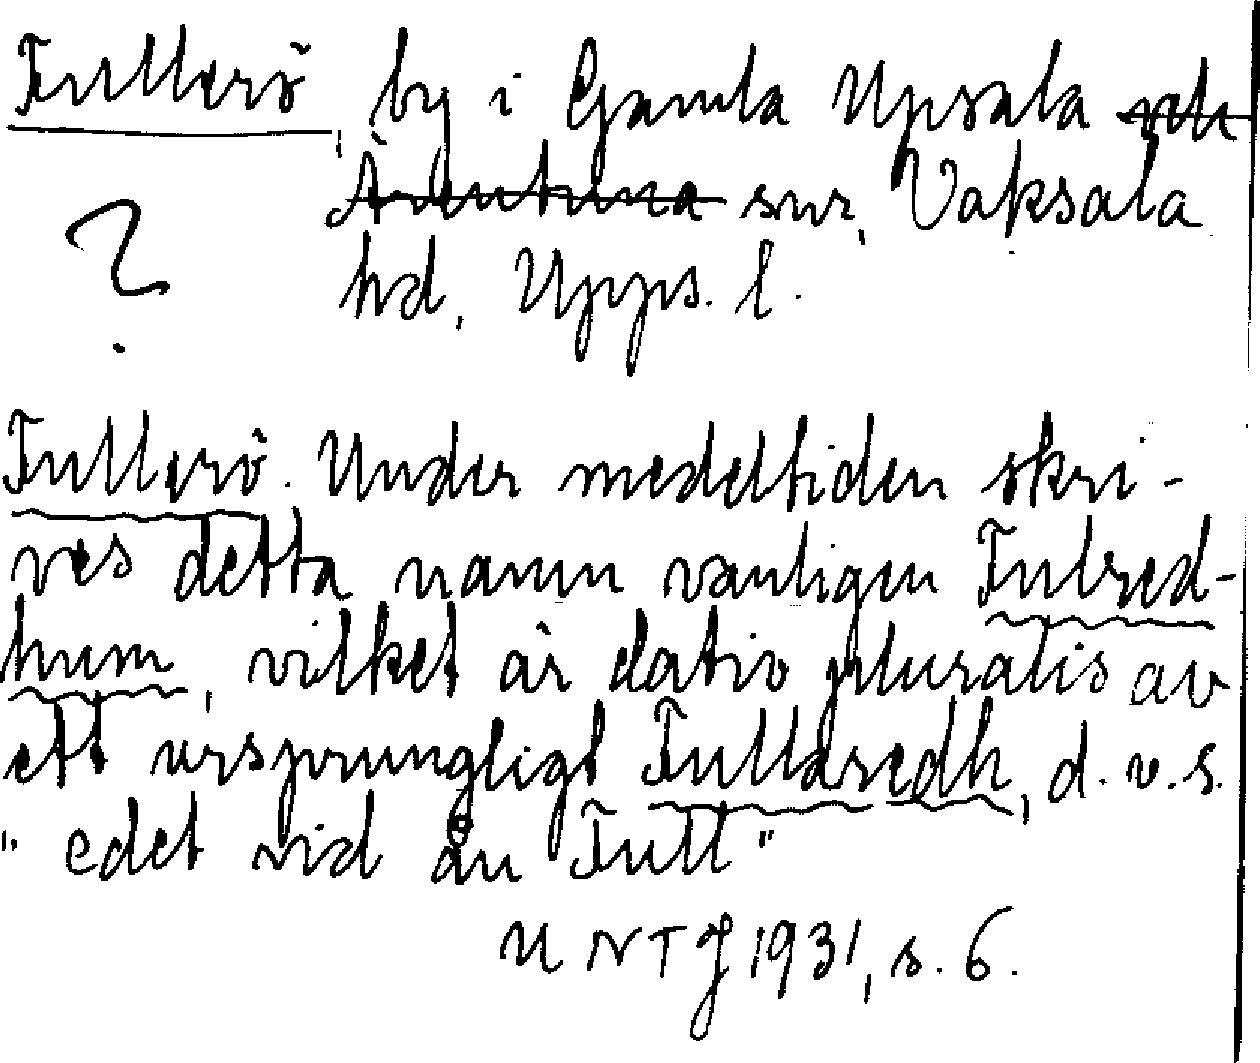 Fullerö, by i Gamla Upsala och
Ärentuna snr, Vaksala
? hd, Upps. l.
Fullerö. Under medeltiden skri-
ves detta namn vanligen Fulred-
hum, vilket är dativ pluralis av
ett ursprungligt Fullaredh, d.v.s.
"edet vid ån Full"
UNTJ 1931, s. 6.